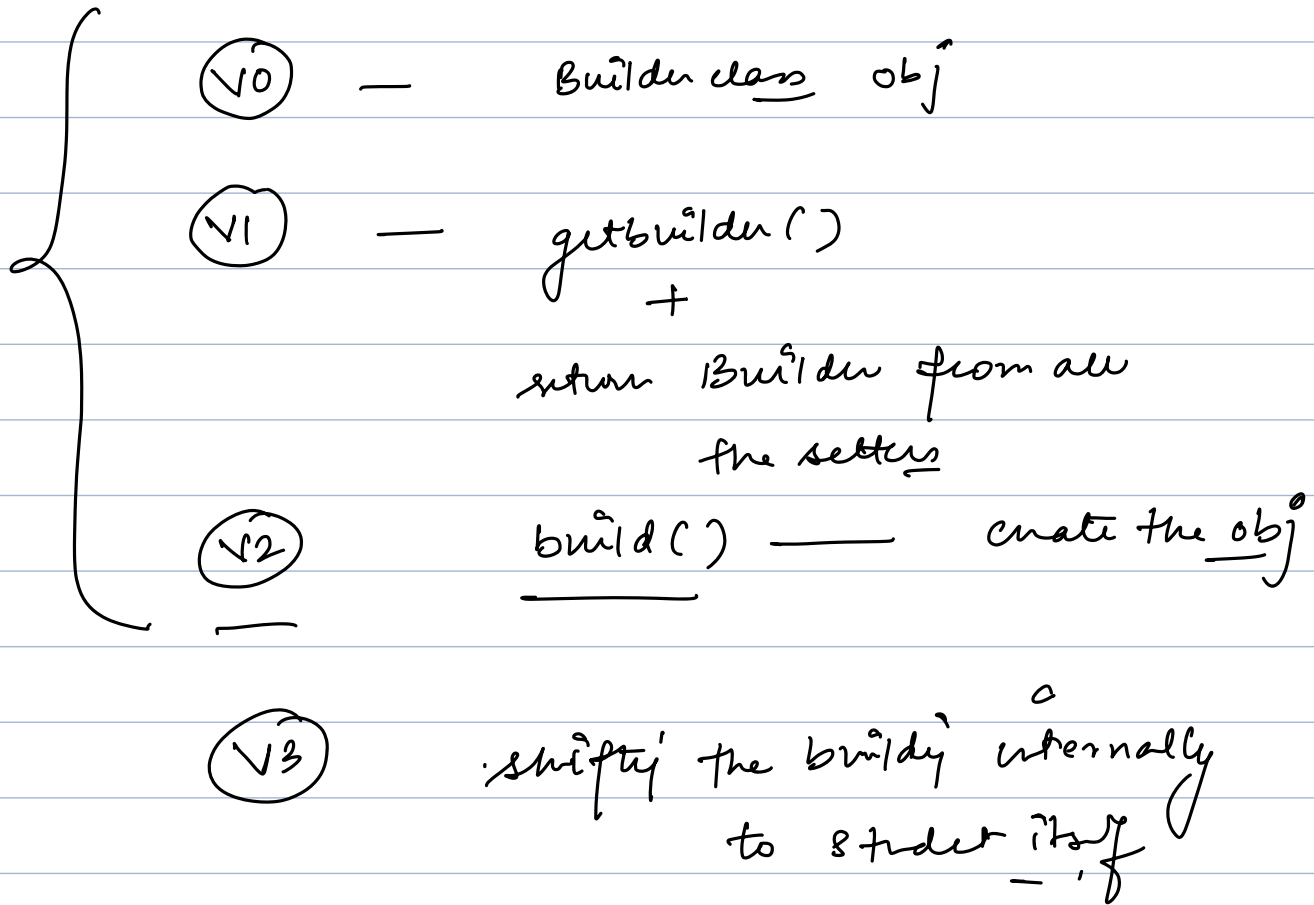 V0 — Builder class obj
V1 — getbuilder()
+
return Builder from all
the setters
V2 build() — create the obj
V3 shifting the building internally
to student itself